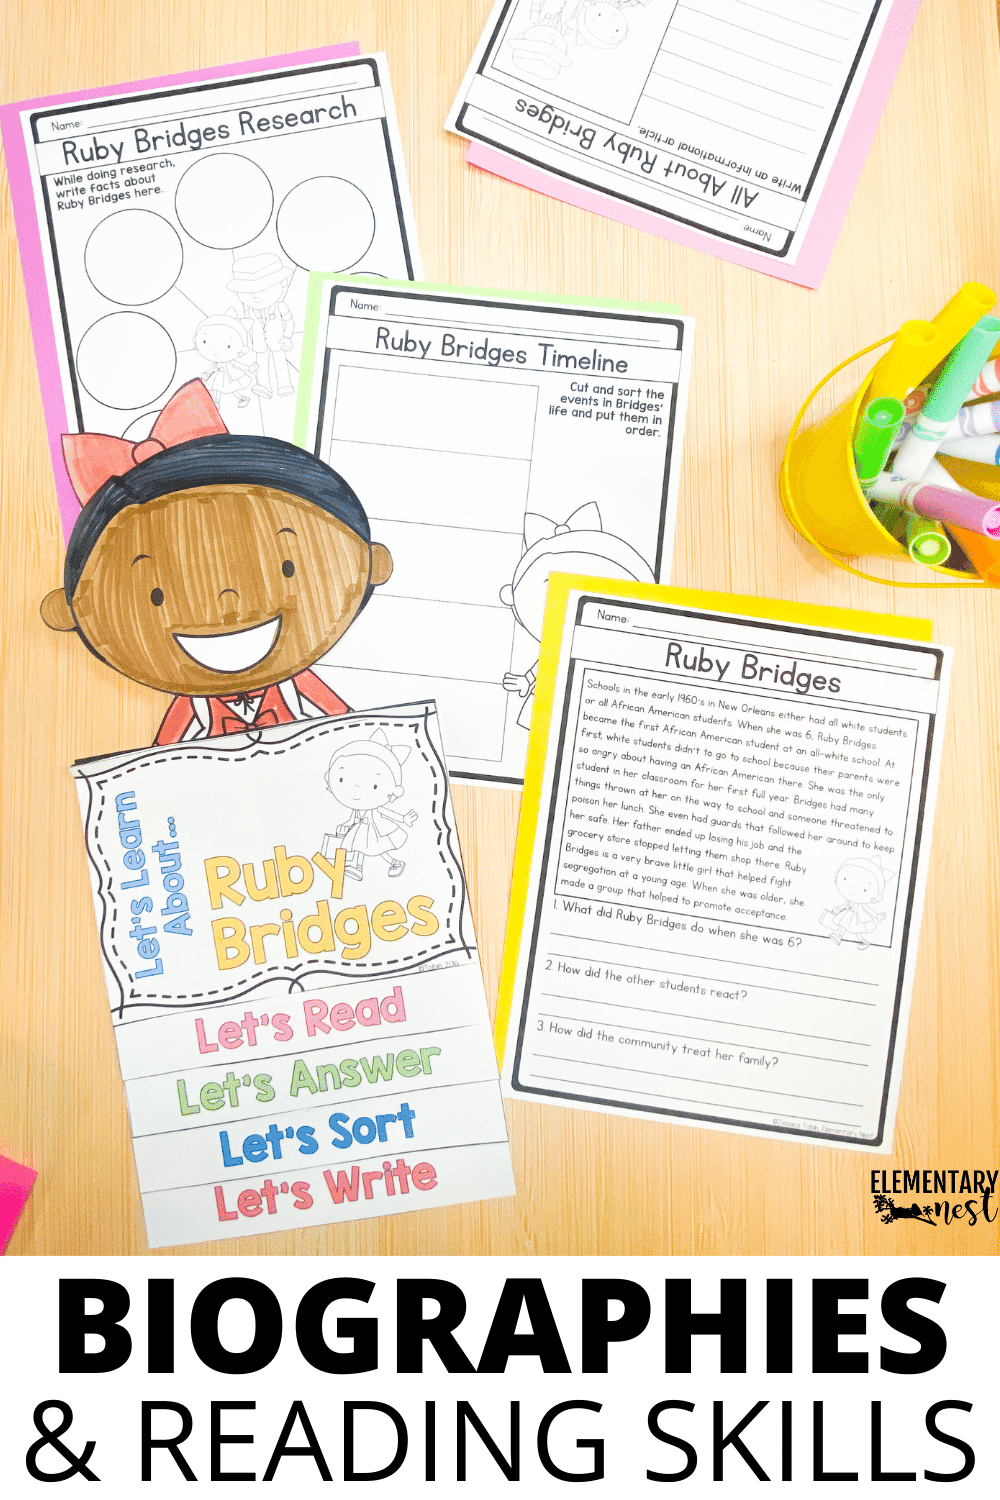 Name:
Ruby Bridges Research
While doing research,
write facts about
Ruby Bridges here.
Name:
All About Ruby Bridges
Write an informational article.
Name:
Ruby Bridges Timeline
Cut and sort the
events in Bridges'
life and put them in
order.
Name:
Ruby Bridges
Schools in the early 1960's in New Orleans either had all white students
or all African American students. When she was 6, Ruby Bridges
became the first African American student at an all-white school. At
first, white students didn't to go to school because their parents were
so angry about having an African American there. She was the only
student in her classroom for her first full year. Bridges had many
things thrown at her on the way to school and someone threatened to
poison her lunch. She even had guards that followed her around to keep
her safe. Her father ended up losing his job and the
grocery store stopped letting them shop there. Ruby
Bridges is a very brave little girl that helped fight
segregation at a young age. When she was older, she
made a group that helped to promote acceptance.
1. What did Ruby Bridges do when she was 6?
2. How did the other students react?
3. How did the community treat her family?
©Jessica Tobin, Elementary Nest
Let's Learn
About...
Ruby
Bridges
©Tobin, 2016
Let's Read
Let's Answer
Let's Sort
Let's Write
ELEMENTARY
nest
BIOGRAPHIES
& READING SKILLS